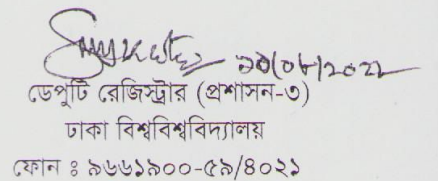 ডেপুটি রেজিস্ট্রার (প্রশাসন-৩)
ঢাকা বিশ্ববিশ্ববিদ্যালয়
ফোন ঃ ৯৬৬১৯০০-৫৯/৪০২১